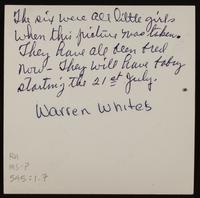 The six were all little girls
when this picture was taken.
They have all been bred
now - They will have babys
starting the 21st July.
Warren Whites
RH
MS-7
545:1.7